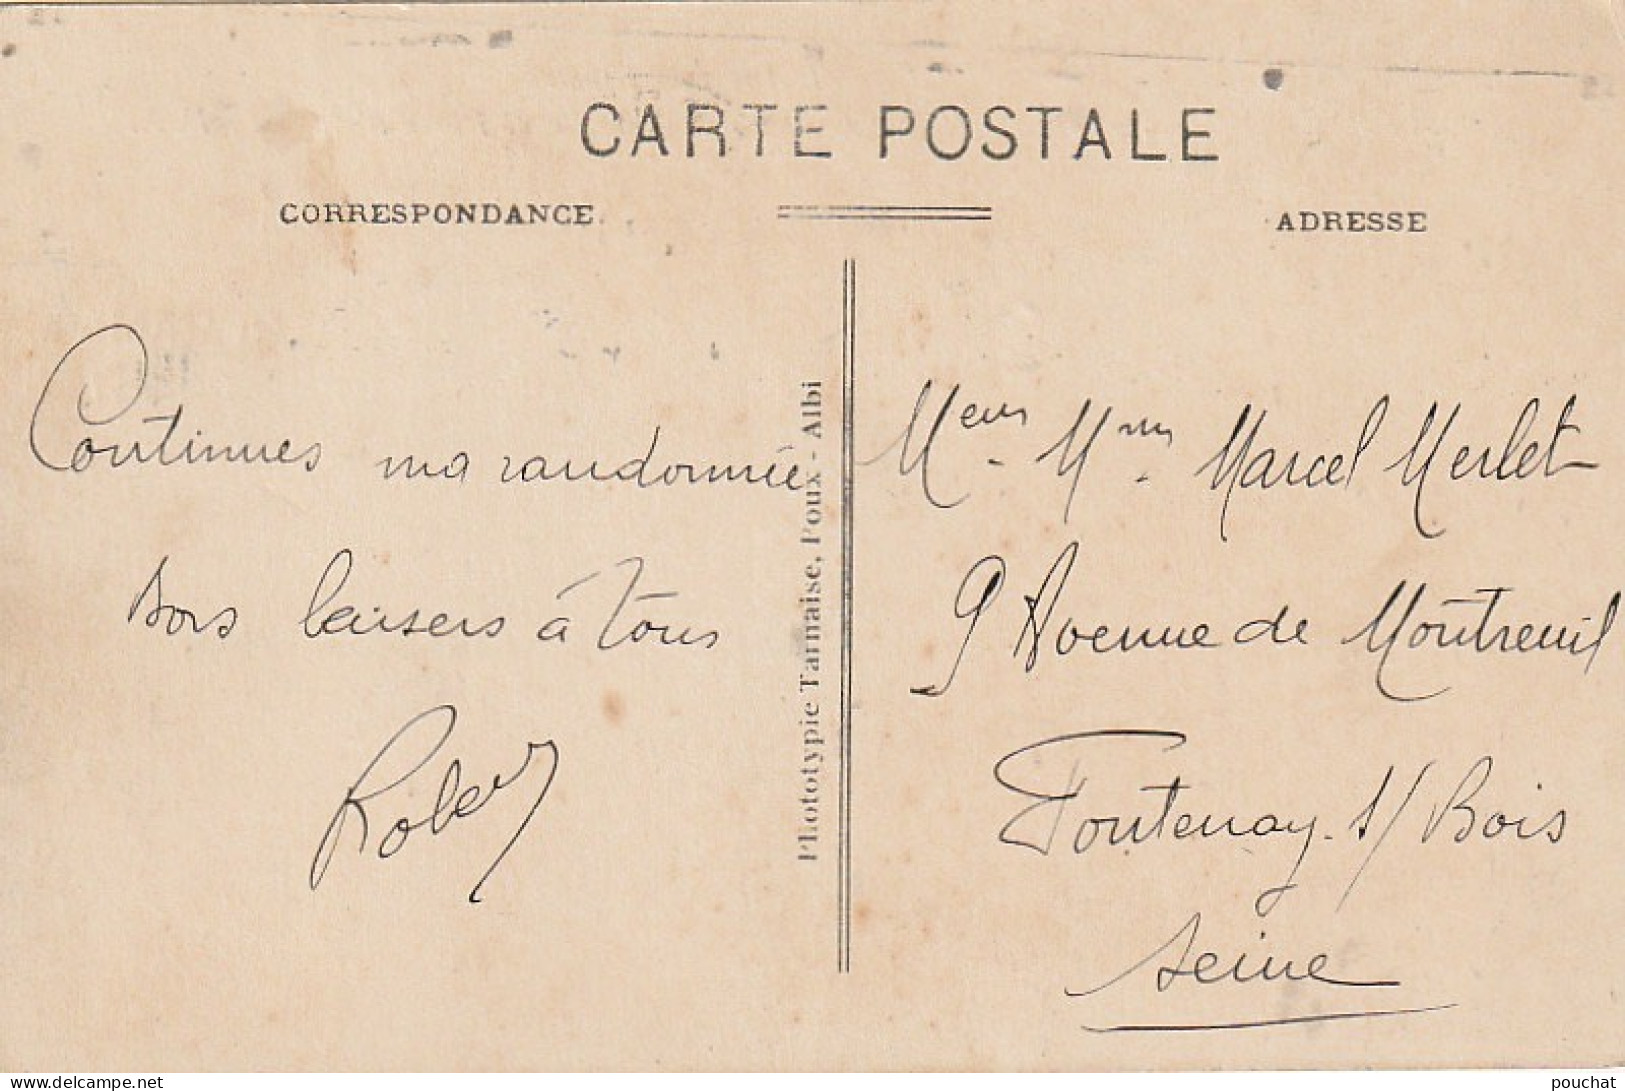 CARTE POSTALE
CORRESPONDANCE
ADRESSE
Continues ma randonnée
bons baisers à tous
Robert
Phototypie Tarnaise, Poux - Albi
Meur - Mme Marcel Merlet
9 Avenue de Montreuil
Fontenay s/ Bois
Seine
www.delcampe.net
pouchat